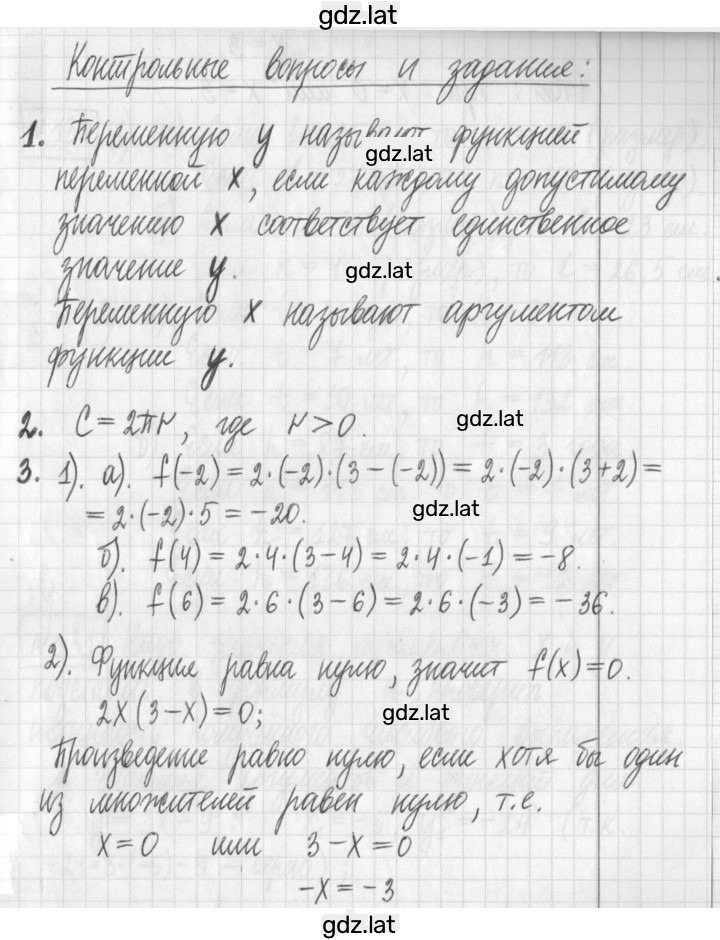 gdz.lat
Контрольные вопросы и задание:
1. Переменную y называют функцией
gdz.lat
переменной x, если каждому допустимому
значению x соответствует единственное
значение y.
gdz.lat
Переменную x называют аргументом
функции y.
2. C = 2πr, где r > 0.
gdz.lat
3. 1). а). f(-2) = 2·(-2)·(3-(-2)) = 2·(-2)·(3+2) =
= 2·(-2)·5 = -20.
gdz.lat
б). f(4) = 2·4·(3-4) = 2·4·(-1) = -8.
в). f(6) = 2·6·(3-6) = 2·6·(-3) = -36.
2). Функция равна нулю, значит f(x)=0.
2x(3-x)=0;
gdz.lat
Произведение равно нулю, если хотя бы один
из множителей равен нулю, т.е.
x=0 или 3-x=0
-x=-3
gdz.lat